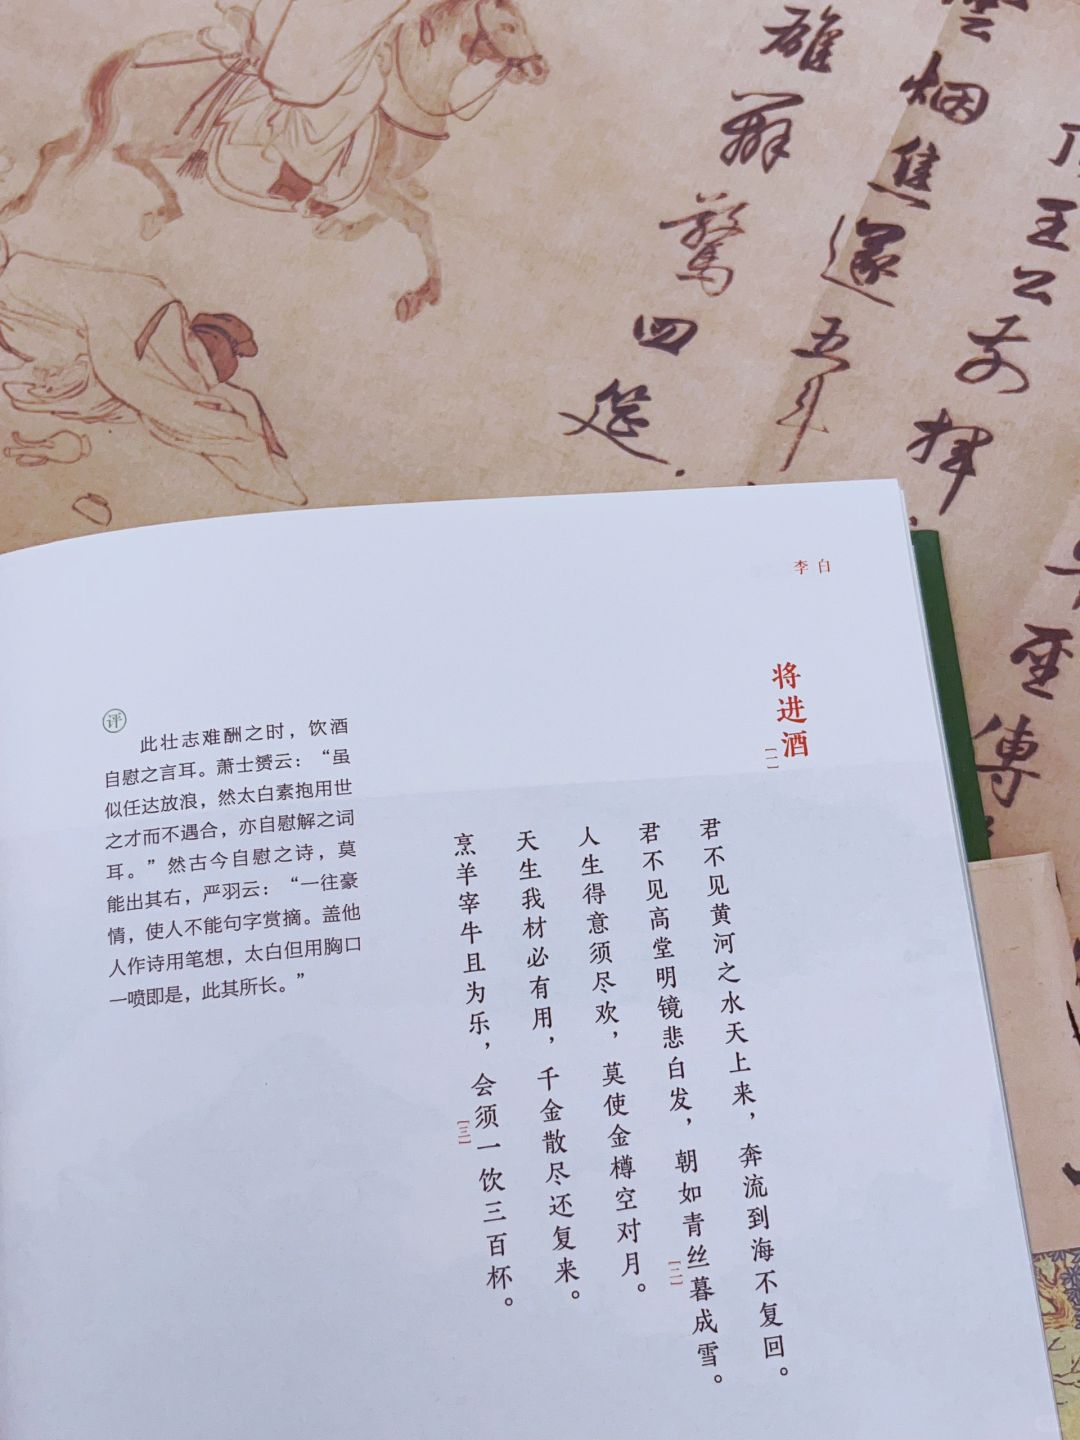 聖傳
王公前揮
雲烟焦遂五斗
雄辯驚四筵
李白
将进酒[一]
君不见黄河之水天上来，奔流到海不复回。
君不见高堂明镜悲白发，朝如青丝暮成雪。[二]
人生得意须尽欢，莫使金樽空对月。
天生我材必有用，千金散尽还复来。
烹羊宰牛且为乐，会须一饮三百杯。[三]
评
此壮志难酬之时，饮酒
自慰之言耳。萧士赟云：“虽
似任达放浪，然太白素抱用世
之才而不遇合，亦自慰解之词
耳。”然古今自慰之诗，莫
能出其右，严羽云：“一往豪
情，使人不能句字赏摘。盖他
人作诗用笔想，太白但用胸口
一喷即是，此其所长。”